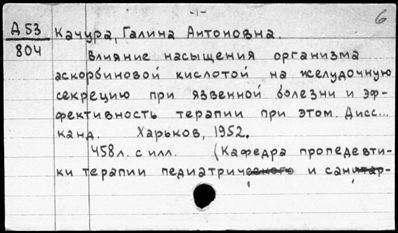 -1-
6
А53
804
Качура, Галина Антоновна.
Влияние насыщения организма
аскорбиновой кислотой на желудочную
секрецию при язвенной болезни и эф-
фективность терапии при этом. Дисс...
канд. Харьков, 1952.
458л. с илл. (Кафедра пропедевти-
ки терапии педиатрического и санитар-